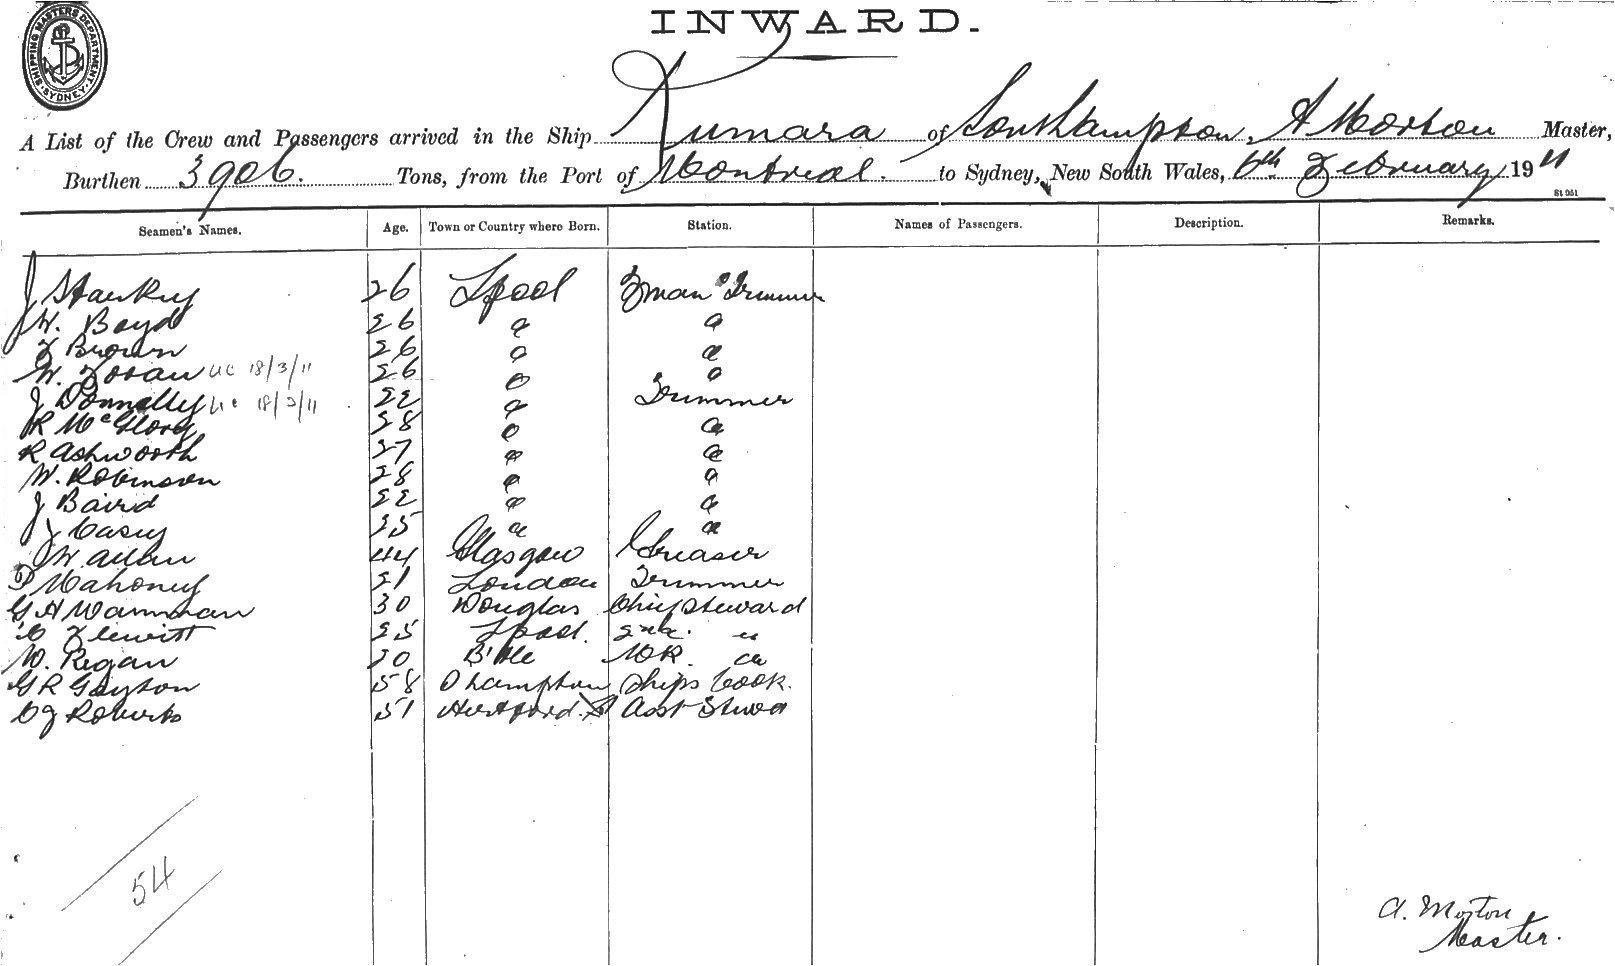 SHIPPING MASTERS DEPARTMENT SYDNEY
INWARD.
A List of the Crew and Passengers arrived in the Ship Kumara of Southampton, A Morton Master,
Burthen 3906. Tons, from the Port of Montreal. to Sydney, New South Wales, 6th February 1911
St 951
Seamen's Names. Age. Town or Country where Born. Station. Names of Passengers. Description. Remarks.
J 26 Lpool Fman & Trimmer
W. Boyd 26 " "
F Brown 26 " "
W. Foran 18/3/11 26 " "
J Donnelly 18/3/11 22 " Trimmer
R McGlory 28 " "
R Ashworth 27 " "
W. Robinson 28 " "
J Baird 22 " "
J Casey 25 " "
W. Allan 44 Glasgow Greaser
P Mahoney 21 London Trimmer
G H Wamman 30 Douglas Chief Steward
C Flewitt 25 Lpool. 2nd. "
W. Regan 20 B'tle M.R. "
G R Gayton 58 Ohampton Ships Cook.
C J Roberts 51 Hertford. Asst Stewd
54
A. Morton
Master.